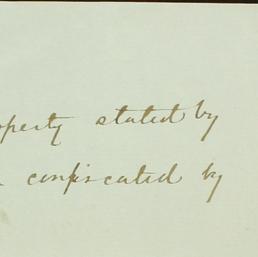 operty stated by
confiscated by